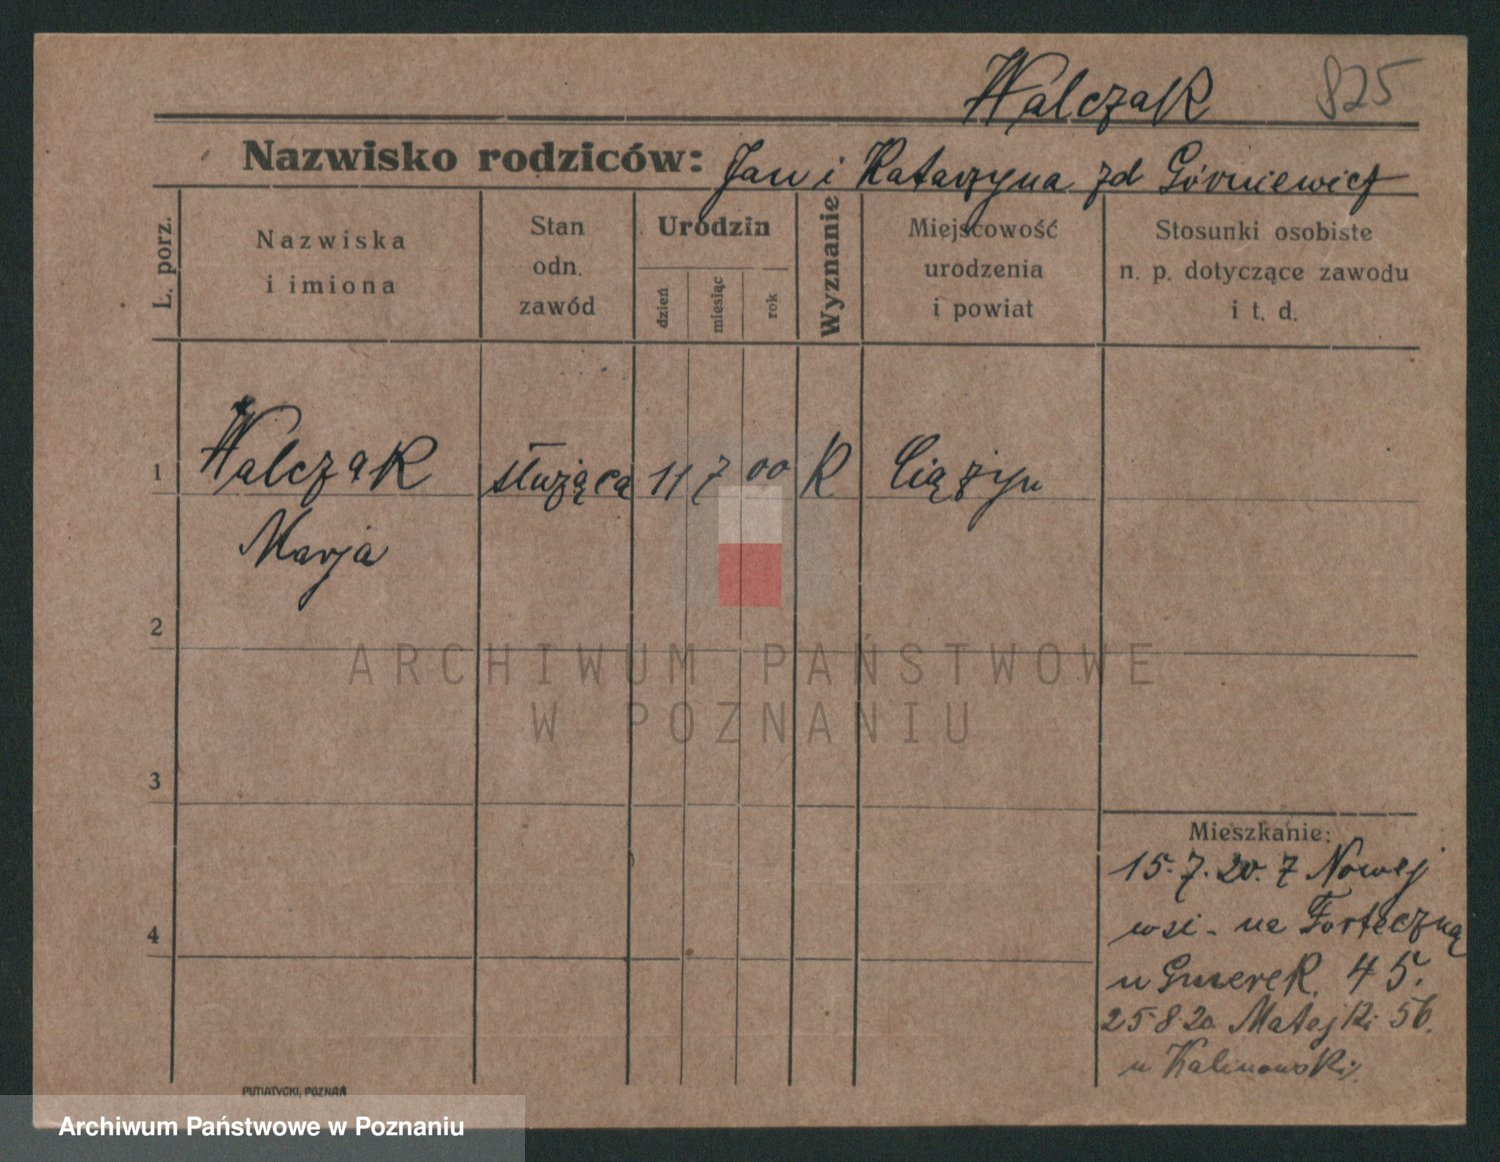 Walczak 825
Nazwisko rodziców: Jan i Katarzyna zd Górniewicz
L. porz.
Nazwiska
i imiona
Stan
odn.
zawód
Urodzin
dzień
miesiąc
rok
Wyznanie
Miejscowość
urodzenia
i powiat
Stosunki osobiste
n. p. dotyczące zawodu
i t. d.
1 Walczak służąca 11 7 00 R Ciążyn
Marja
2
3
4
Mieszkanie:
15.7.20. z Nowej
wsi - na Forteczną
u 45.
25.8.20 Matejki 56.
u Kalinowski
PUTIATYCKI, POZNAŃ
ARCHIWUM PAŃSTWOWE
W POZNANIU
Archiwum Państwowe w Poznaniu